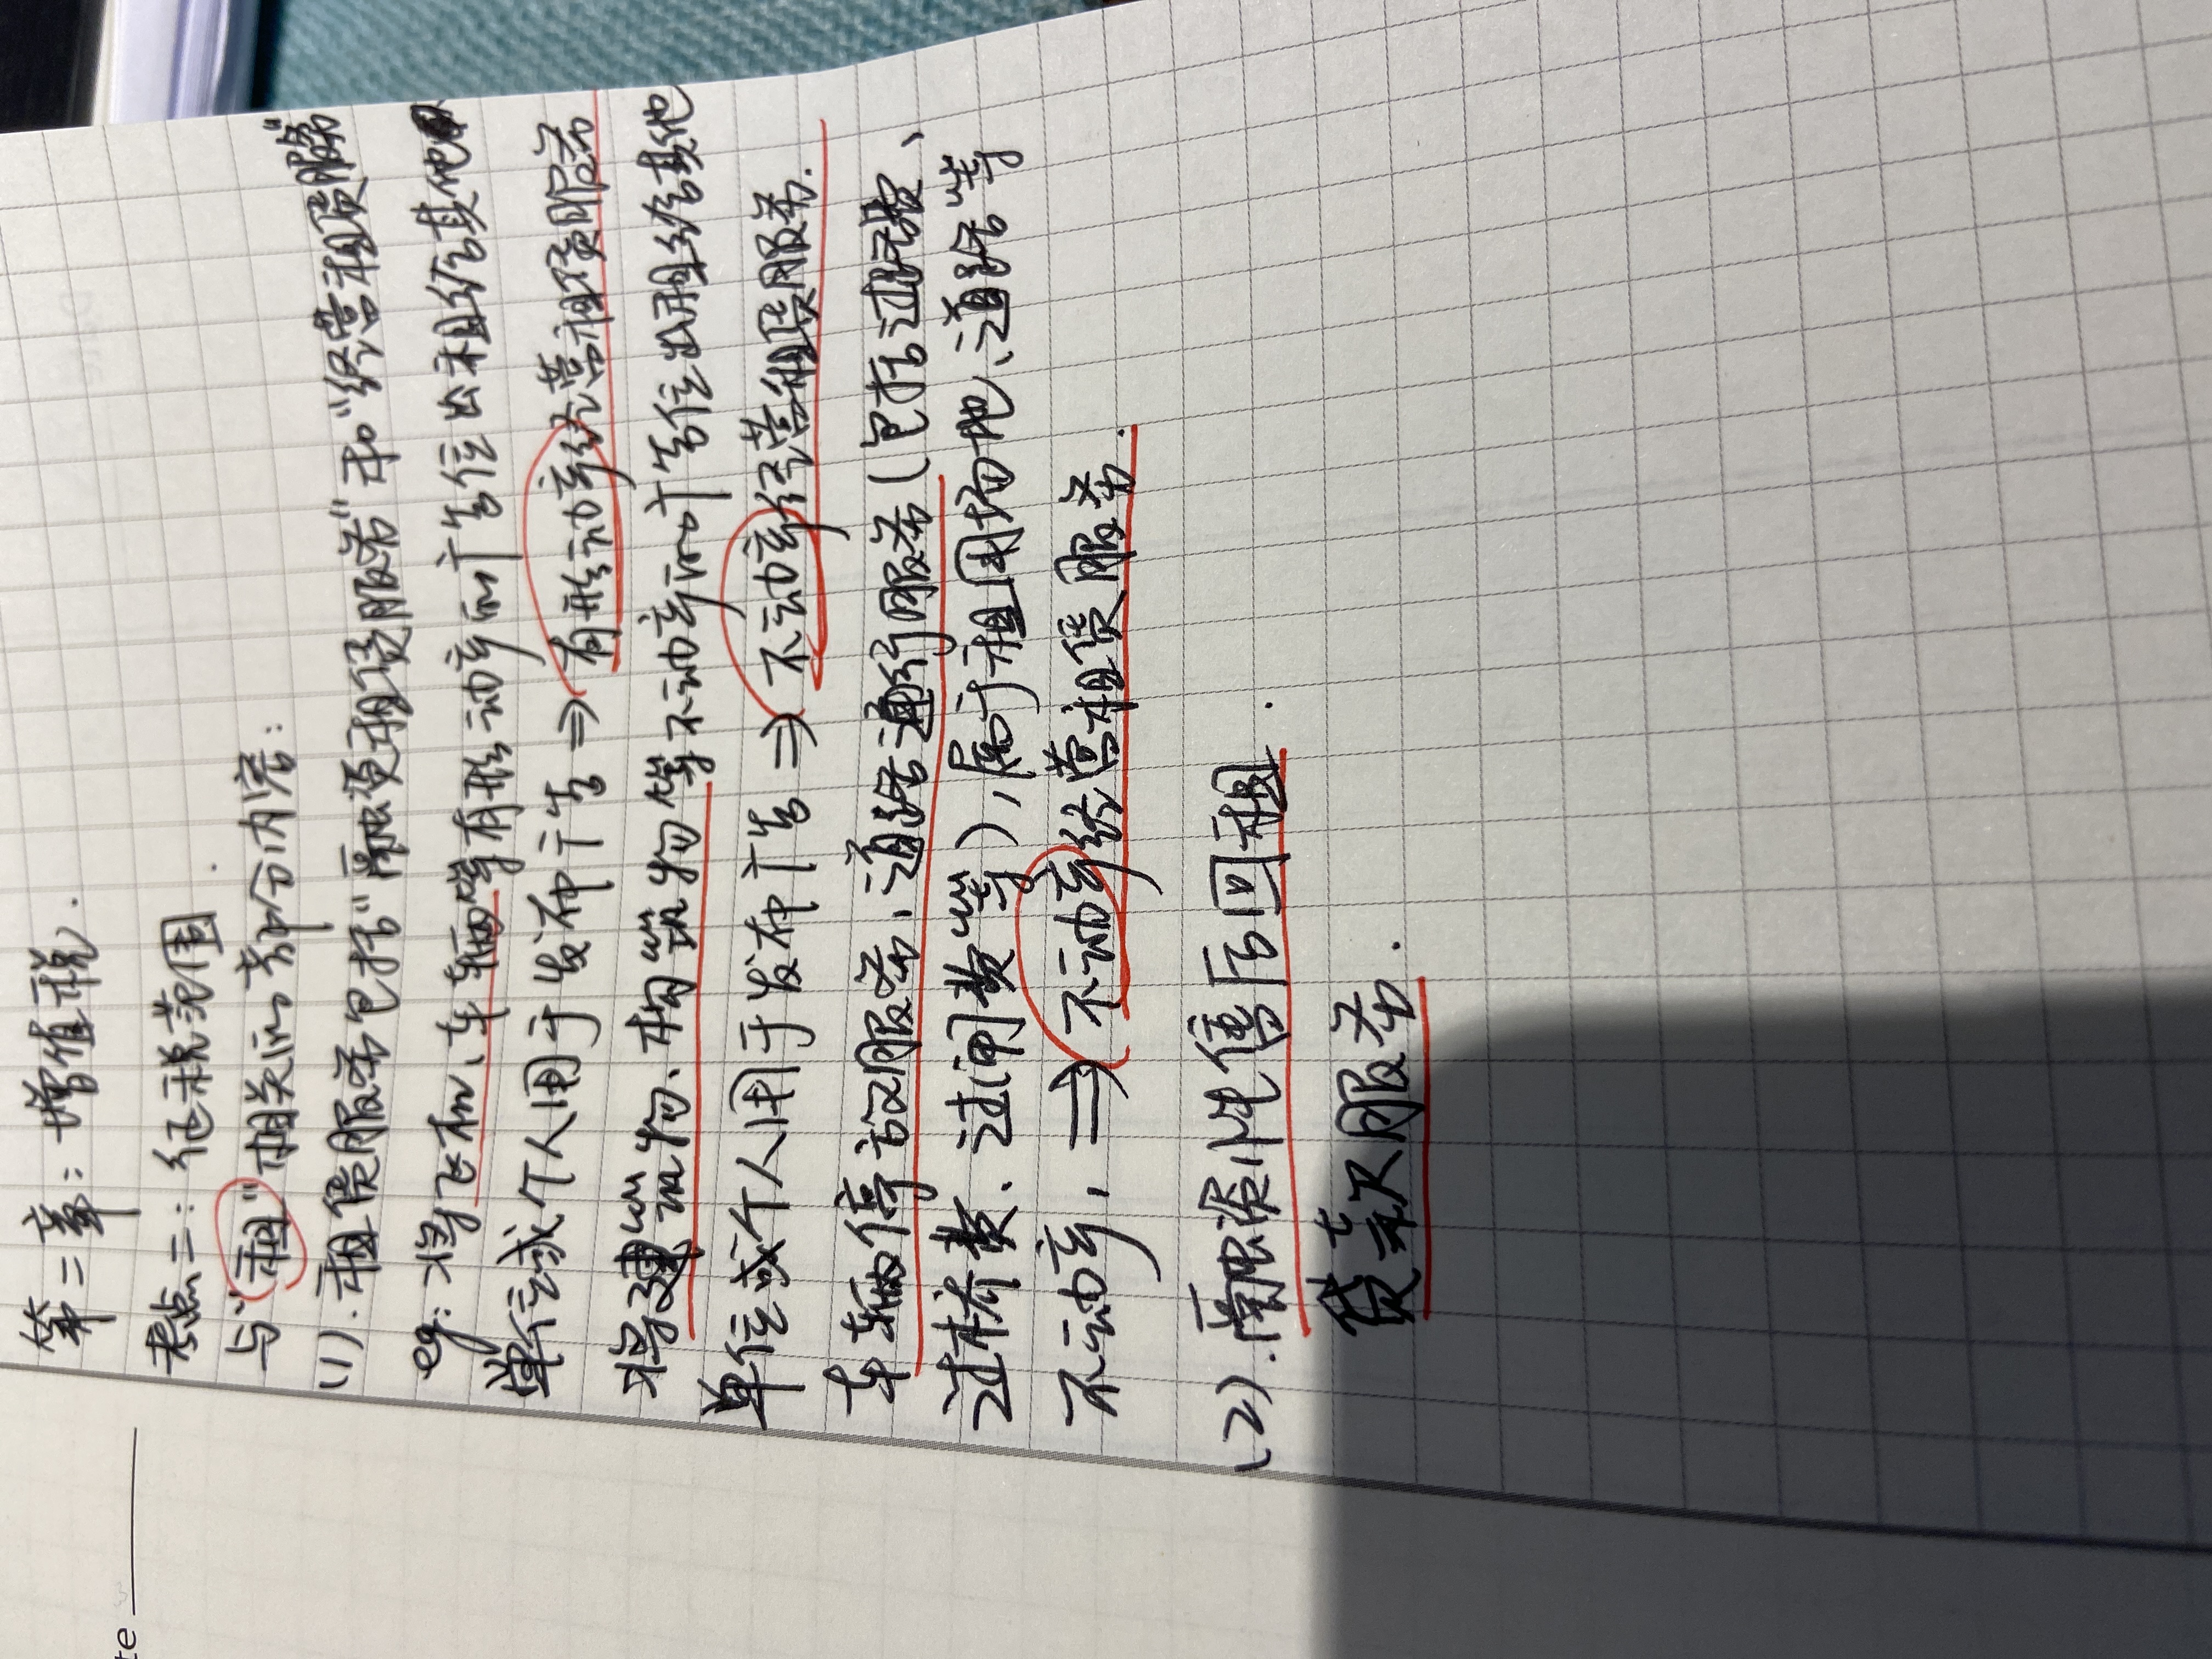 第二章：增值税.
考点二：征税范围.
与"租"相关的部分内容：
(1).租赁服务包括"融资租赁服务"和"经营租赁服务"
eg：将飞机、车辆等有形动产的广告位出租给其他
单位或个人用于发布广告⇒有形动产经营租赁服务
将建筑物、构筑物等不动产的广告位出租给其他
单位或个人用于发布广告⇒不动产经营租赁服务.
车辆停放服务，道路通行服务(包括过路费、
过桥费、过闸费等)，属于租用场地、道路等
不动产，⇒不动产经营租赁服务.
(2).融资性售后回租.
贷款服务.
te